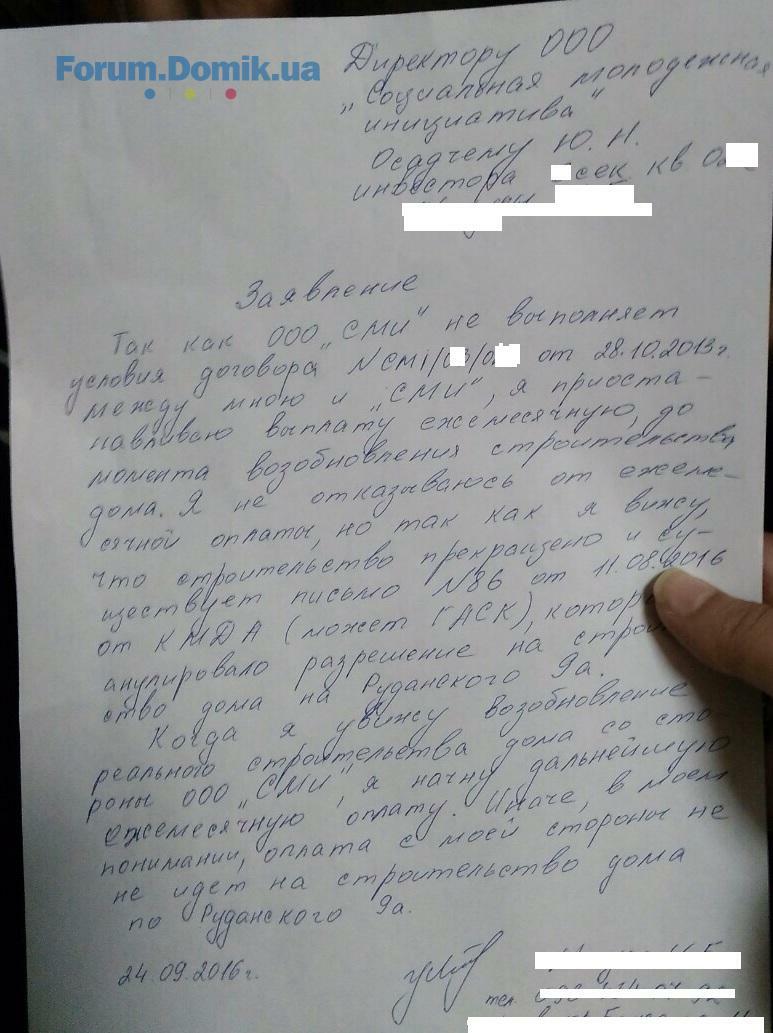 Forum.Domik.ua
Директору ООО
„Социальная молодежная
инициатива"
Осадчему Ю. Н.
инвестора сек кв
Заявление
Так как ООО „СМИ" не выполняет
условия договора N СМi/ от 28.10.2013г.
между мною и „СМИ", я приоста-
навливаю выплату ежемесячную, до
момента возобновления строительства
дома. Я не отказываюсь от ежеме-
сячной оплаты, но так как я вижу,
что строительство прекращено и су-
ществует письмо N86 от 11.08.2016
от КМДА (может ГАСК), котор
анулировало разрешение на строи
ство дома на Руданского 9а.
Когда я увижу возобновление
реального строительства дома со сто-
роны ООО „СМИ", я начну дальнейшую
ежемесячную оплату. Иначе, в моем
понимании, оплата с моей стороны не
не идет на строительство дома
по Руданского 9а.
24.09.2016г.
тел.